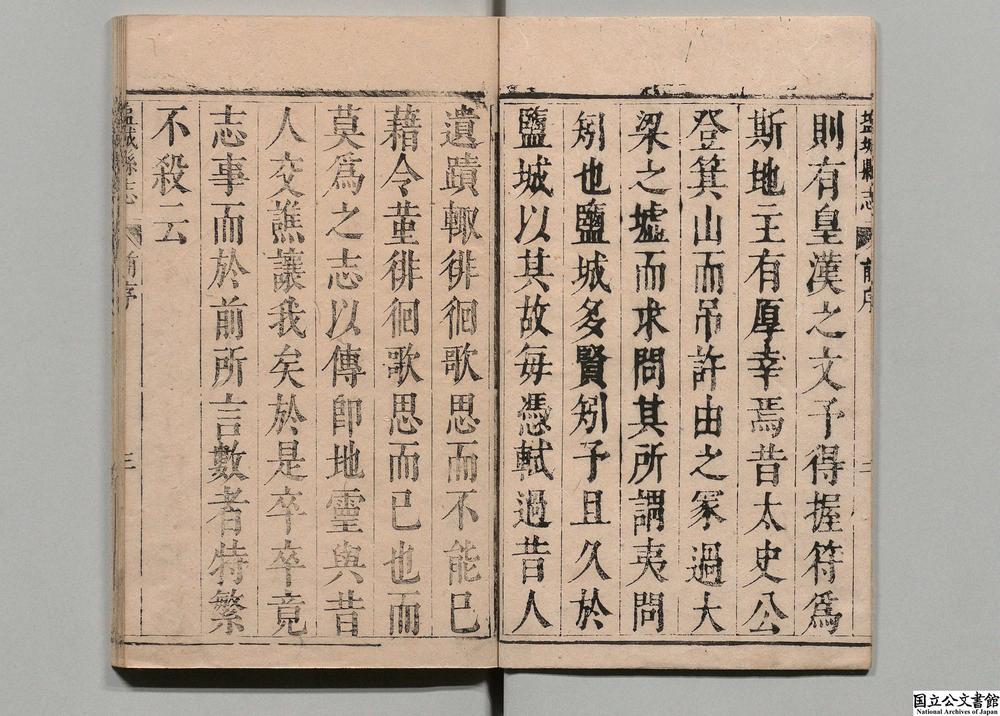 鹽城縣志
前序
二
則有皇漢之文予得握符爲
斯地主有厚幸焉昔太史公
登箕山而吊許由之冢過大
梁之墟而求問其所謂夷問
矧也鹽城多賢矧予且久於
鹽城以其故每憑軾過昔人
遺蹟輙徘徊歌思而不能已
藉令董徘徊歌思而已也而
莫爲之志以傳卽地靈與昔
人交譙讓我矣於是卒卒竟
志事而於前所言數者特繁
不殺云
鹽城縣志
前序
三
国立公文書館
National Archives of Japan